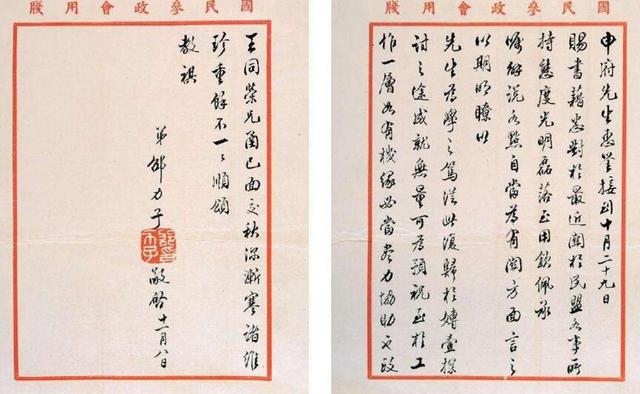 國民參政會用牋
申府先生惠鑒接到十月二十九日
賜書藉悉對於最近關於民盟各事所
持態度光明磊落至用欽佩承
囑解說各點自當為有關方面言之
以期明瞭以
先生為學之篤從此復歸於嫥壹探
討之途成就無量可為預祝至於工
作一層如有機緣必當盡力協助也致
國民參政會用牋
王同榮兄函已面交秋深漸寒諸維
珍重餘不一一順頌
教祺
弟邵力子敬啓十一月八日